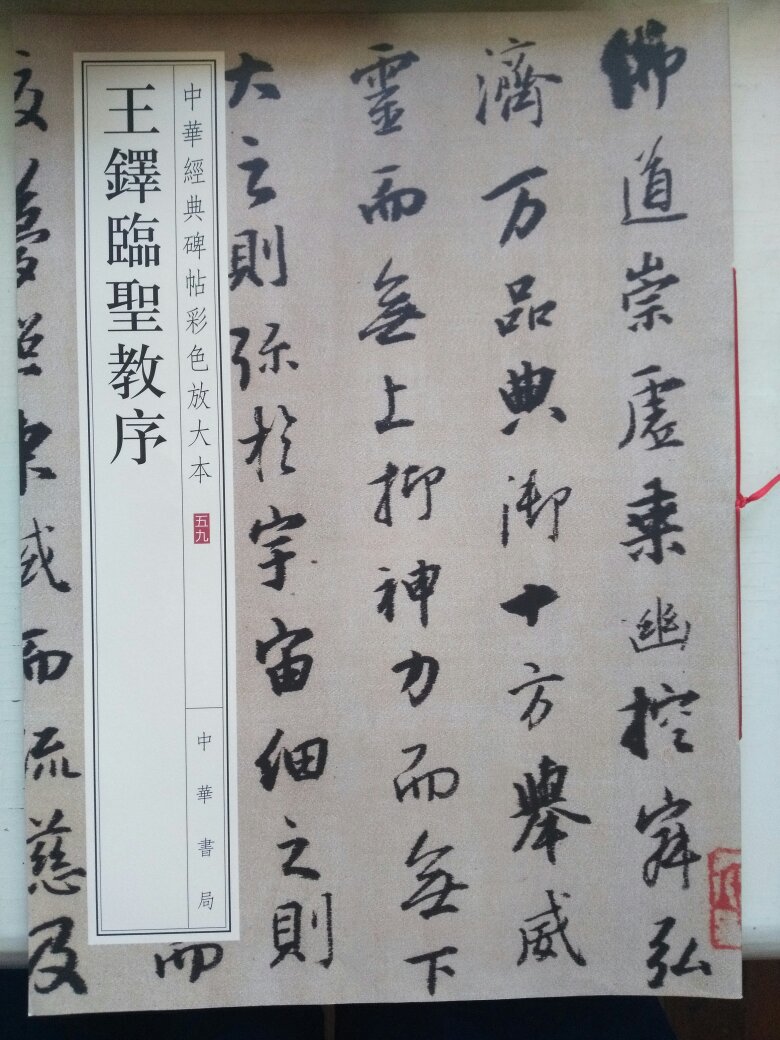 佛道崇虛乘幽控寂弘
濟万品典御十方舉威
靈而無上抑神力而無下
大之則弥於宇宙細之則
中華經典碑帖彩色放大本
五九
中華書局
王鐸臨聖教序
而
東域而流慈及